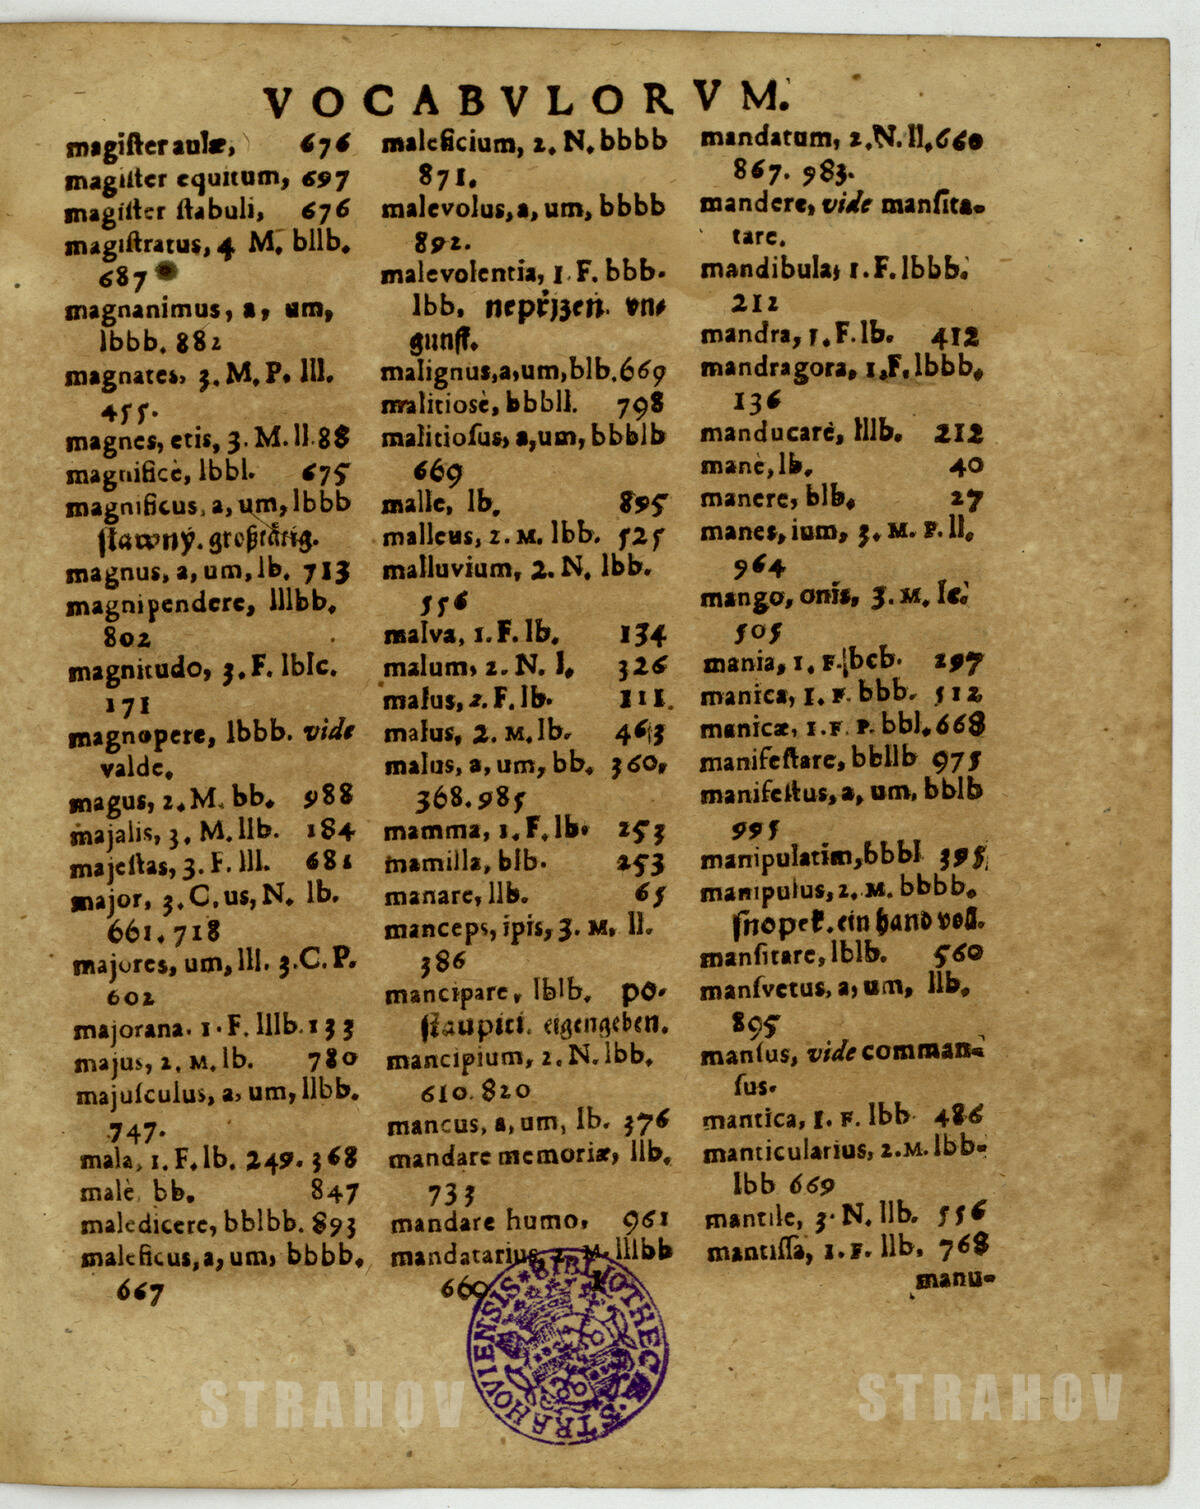 VOCABVLORVM.
magiſter aulæ, 676
magiſter equitum, 697
magiſter ſtabuli, 676
magiſtratus, 4 M. bllb.
687
magnanimus, a, um,
lbbb. 882
magnates, 3. M. P. lll.
455.
magnes, etis, 3. M. ll. 88
magnificè, lbbl. 675
magnificus, a, um, lbbb
ſlawný. großtätig.
magnus, a, um, lb. 713
magnipendere, lllbb.
802
magnitudo, 3. F. lblc.
171
magnopere, lbbb. vide
valde.
magus, 2. M. bb. 988
majalis, 3. M. llb. 184
majeſtas, 3. F. lll. 681
major, 3. C. us, N. lb.
661. 718
majores, um, lll. 3. C. P.
602
majorana. 1. F. lllb. 133
majus, 2. M. lb. 780
majuſculus, a, um, llbb.
747.
mala, 1. F. lb. 249. 368
malè, bb. 847
maledicere, bblbb. 893
maleficus, a, um, bbbb.
667
maleficium, 2. N. bbbb
871.
malevolus, a, um, bbbb
892.
malevolentia, 1 F. bbb-
lbb. nepřjzeň. un-
gunſt.
malignus, a, um, blb. 669
malitiosè, bbbll. 798
malitioſus, a, um, bbblb
669
malle, lb. 895
malleus, 2. M. lbb. 525
malluvium, 2. N. lbb.
556
malva, 1. F. lb. 134
malum, 2. N. l. 326
malus, 2. F. lb. 111.
malus, 2. M. lb. 463
malus, a, um, bb. 360.
368. 985
mamma, 1. F. lb. 253
mamilla, blb. 253
manare, llb. 65
manceps, ipis, 3. M. ll.
386
mancipare, lblb. po-
ſtaupiti. eigengeben.
mancipium, 2. N. lbb.
610. 820
mancus, a, um, lb. 376
mandare memoriæ, llb.
733
mandare humo, 961
mandatarius, 2. M. lllbb
660
mandatum, 2. N. ll. 660
867. 983.
mandere, vide manſita-
tare.
mandibula, 1. F. lbbb.
212
mandra, 1. F. lb. 412
mandragora, 1. F. lbbb.
136
manducarè, lllb. 212
manè, lb. 40
manere, blb. 27
manes, ium, 3. M. P. ll.
964
mango, onis, 3. M. lc.
505
mania, 1. F. bcb. 297
manica, 1. F. bbb. 512
manicæ, 1. F. P. bbl. 668
manifeſtare, bbllb 975
manifeſtus, a, um, bblb
995
manipulatim, bbbl 395
manipulus, 2. M. bbbb.
ſnopek. ein hand voll.
manſitare, lblb. 560
manſvetus, a, um, llb.
895
manſus, vide comman-
ſus.
mantica, 1. F. lbb 486
manticularius, 2. M. lbb-
lbb 669
mantile, 3. N. llb. 556
mantiſſa, 1. F. llb. 768
manu-
BIBLIOTHECA STRAHOVIENSIS
STRAHOV
STRAHOV